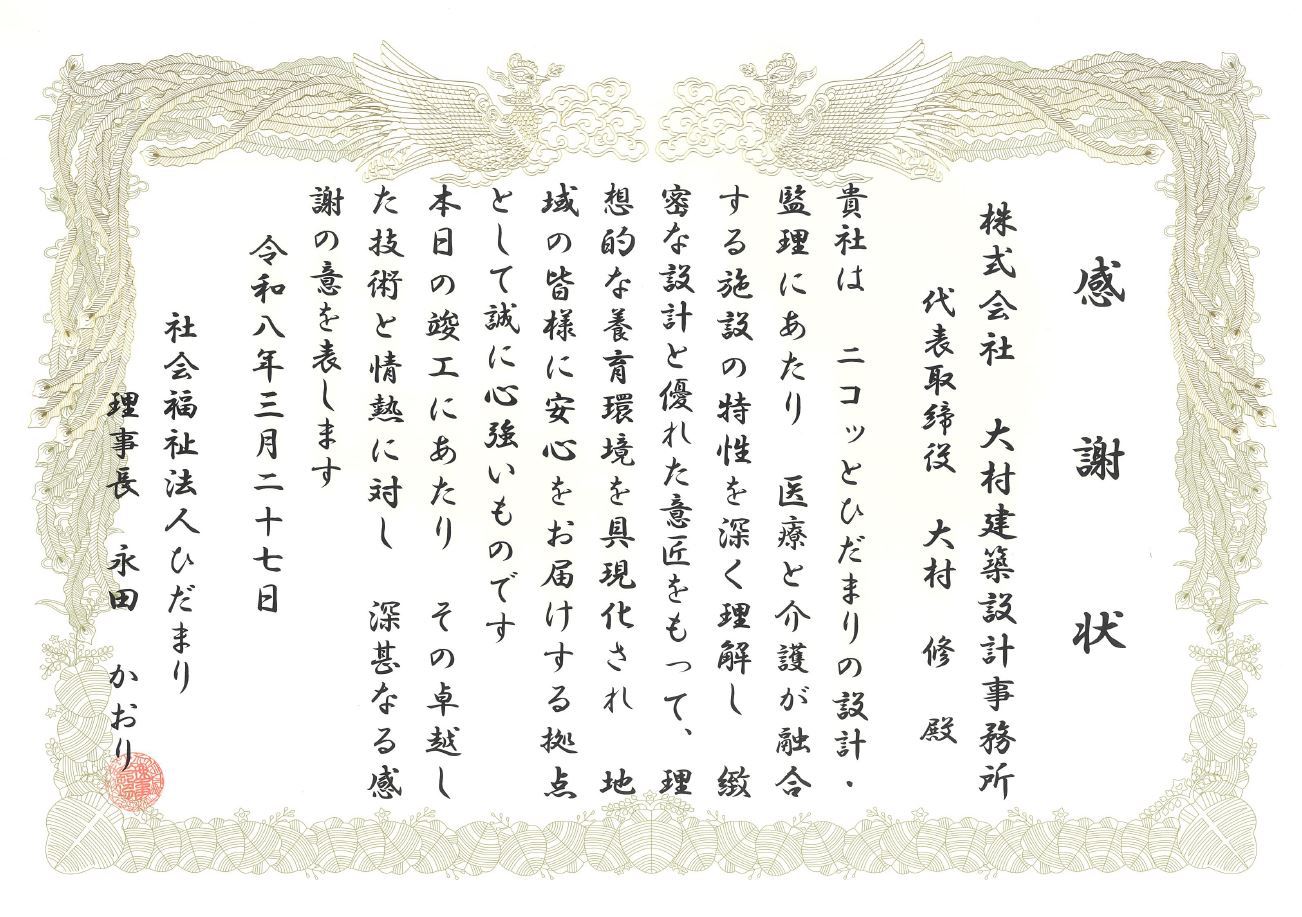 感謝状
株式会社 大村建築設計事務所
代表取締役 大村 修 殿
貴社は ニコッとひだまりの設計・
監理にあたり 医療と介護が融合
する施設の特性を深く理解し 緻
密な設計と優れた意匠をもって、理
想的な養育環境を具現化され 地
域の皆様に安心をお届けする拠点
として誠に心強いものです
本日の竣工にあたり その卓越し
た技術と情熱に対し 深甚なる感
謝の意を表します
令和八年三月二十七日
社会福祉法人ひだまり
理事長 永田 かおり